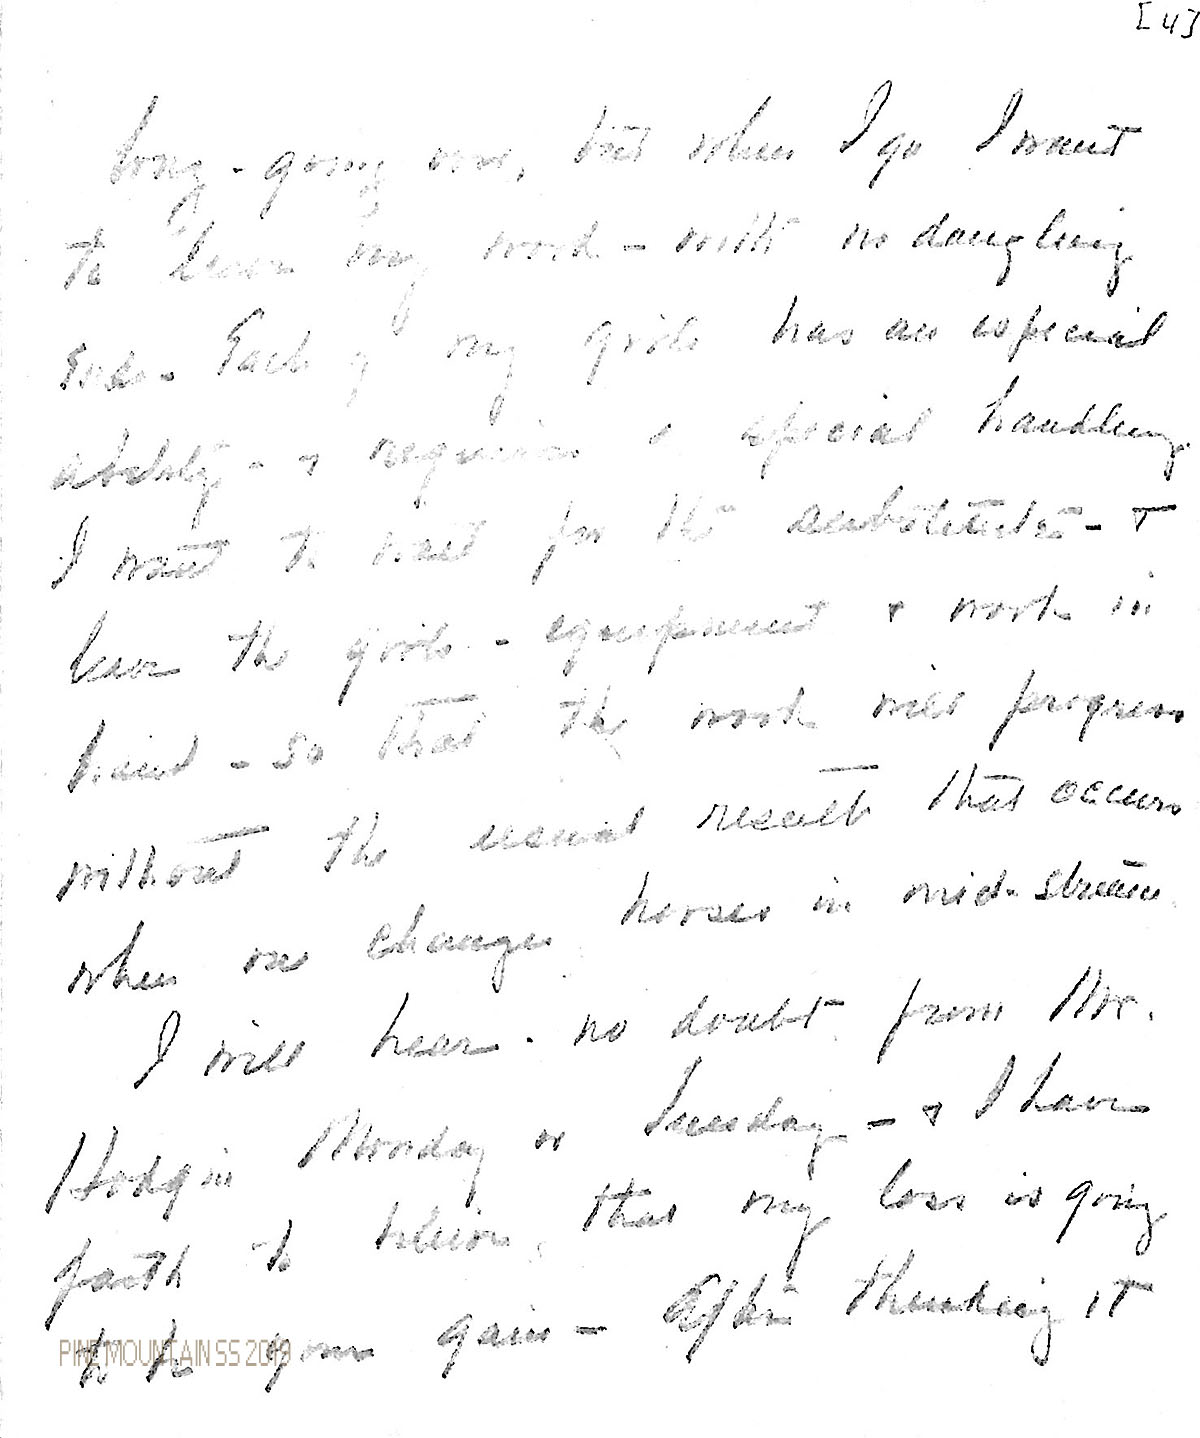 [4]
long-going one, but when I go I want
to leave my work - with no dangling
ends. Each of my girls has an especial
ability - & requires a special handling
I want to wait for the substitute - &
leave the girls - equipment & work in
hand - so that the work will progress
without the usual result that occurs
when one changes horses in mid-stream.
I will hear no doubt from Mr.
Hodgin Monday or Tuesday - & I have
faith to believe that my loss is going
to be your gain - After thinking it
PINE MOUNTAIN SS 2019